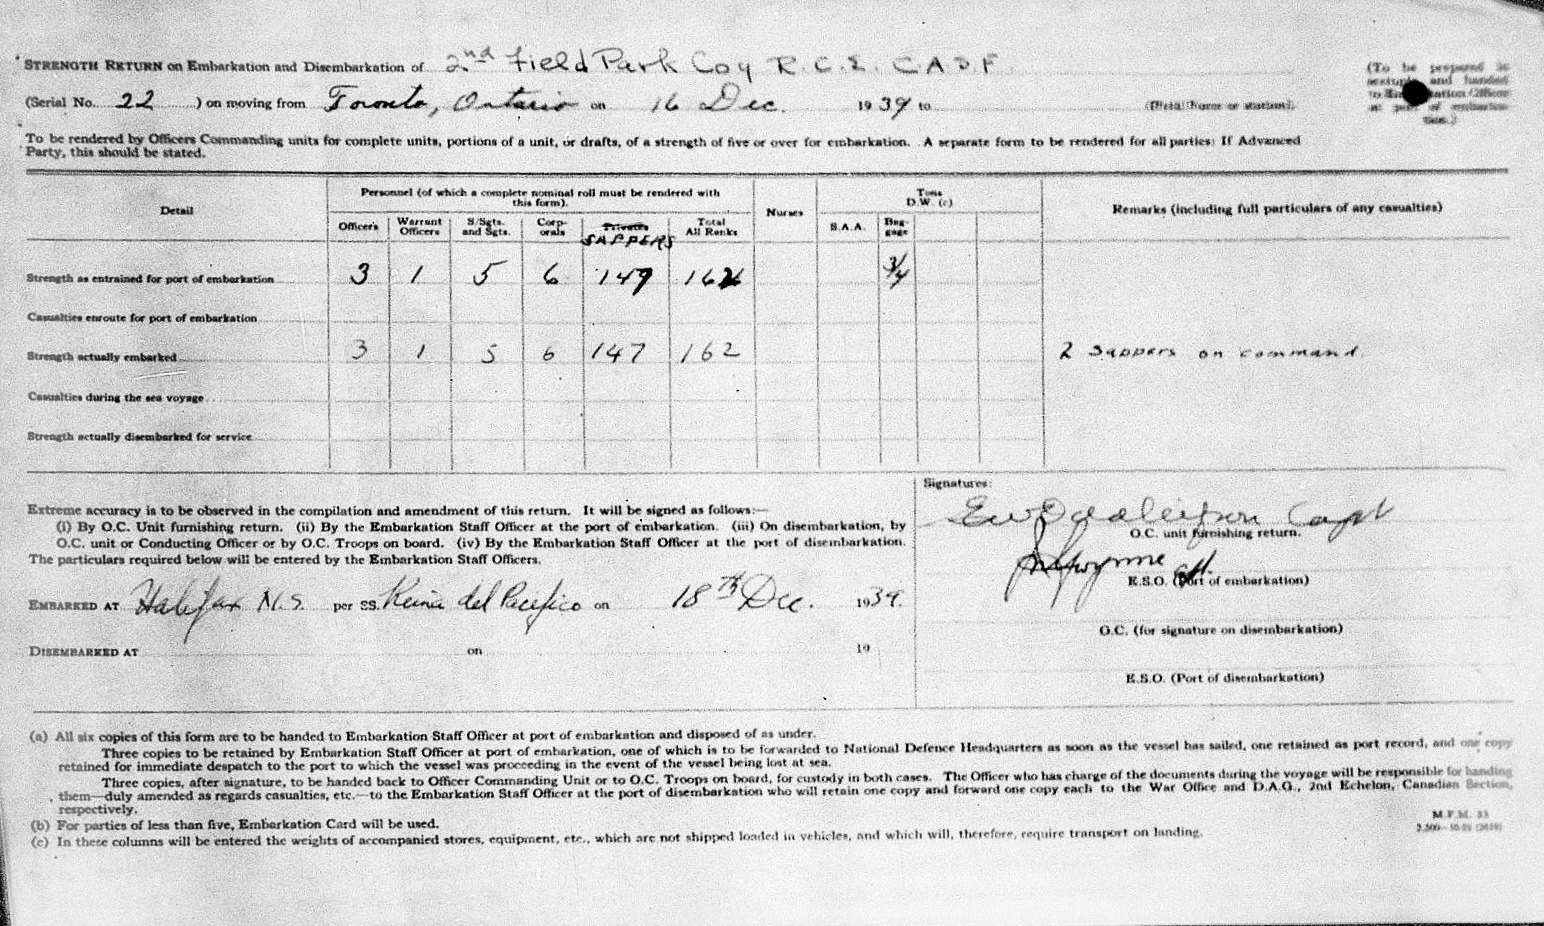 STRENGTH RETURN on Embarkation and Disembarkation of 2nd Field Park Coy R.C.E. C.A.S.F.
(To be prepared in
and handed
to Embarkation Officer
at port of embarka-
tion.)
(Serial No. 22 ) on moving from Toronto, Ontario on 16 Dec. 1939 to (Field Name or station).
To be rendered by Officers Commanding units for complete units, portions of a unit, or drafts, of a strength of five or over for embarkation. A separate form to be rendered for all parties: If Advanced
Party, this should be stated.
Detail
Personnel (of which a complete nominal roll must be rendered with
this form).
Nurses
Tons
D.W. (c)
Remarks (including full particulars of any casualties)
Officers
Warrant
Officers
S/Sgts.
and Sgts.
Corp-
orals
Privates
SAPPERS
Total
All Ranks
S.A.A.
Bag-
gage
Strength as entrained for port of embarkation 3 1 5 6 147 162 3/4
Casualties enroute for port of embarkation
Strength actually embarked 3 1 5 6 147 162 2 sappers on command.
Casualties during the sea voyage
Strength actually disembarked for service
Extreme accuracy is to be observed in the compilation and amendment of this return. It will be signed as follows:—
(i) By O.C. Unit furnishing return. (ii) By the Embarkation Staff Officer at the port of embarkation. (iii) On disembarkation, by
O.C. unit or Conducting Officer or by O.C. Troops on board. (iv) By the Embarkation Staff Officer at the port of disembarkation.
The particulars required below will be entered by the Embarkation Staff Officers.
EMBARKED AT Halifax N.S. per SS. Reina del Pacifico on 18th Dec. 1939.
DISEMBARKED AT on 19
Signatures:
Capt
O.C. unit furnishing return.
E.S.O. (Port of embarkation)
O.C. (for signature on disembarkation)
E.S.O. (Port of disembarkation)
(a) All six copies of this form are to be handed to Embarkation Staff Officer at port of embarkation and disposed of as under.
Three copies to be retained by Embarkation Staff Officer at port of embarkation, one of which is to be forwarded to National Defence Headquarters as soon as the vessel has sailed, one retained as port record, and one copy
retained for immediate despatch to the port to which the vessel was proceeding in the event of the vessel being lost at sea.
Three copies, after signature, to be handed back to Officer Commanding Unit or to O.C. Troops on board, for custody in both cases. The Officer who has charge of the documents during the voyage will be responsible for handing
them—duly amended as regards casualties, etc.—to the Embarkation Staff Officer at the port of disembarkation who will retain one copy and forward one copy each to the War Office and D.A.G., 2nd Echelon, Canadian Section,
respectively.
(b) For parties of less than five, Embarkation Card will be used.
(c) In these columns will be entered the weights of accompanied stores, equipment, etc., which are not shipped loaded in vehicles, and which will, therefore, require transport on landing.
M.F.M. 33